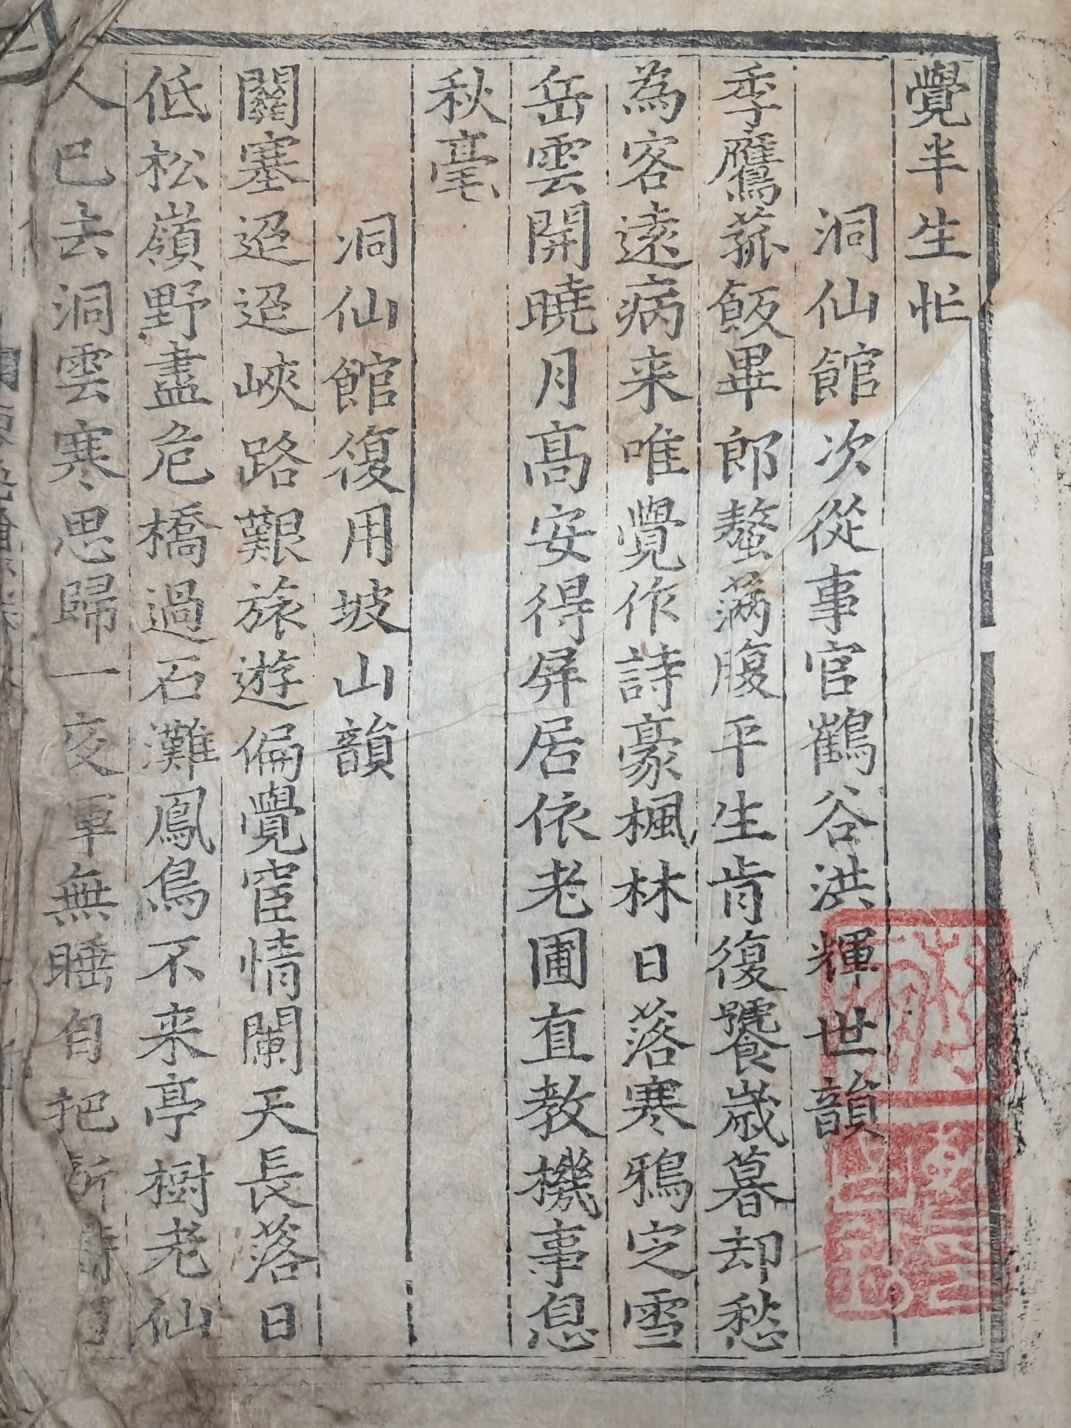 覺半生忙
洞仙館次從事官鶴谷洪輝世韻
季鷹菰飯畢郎螯滿腹平生肯復饕歲暮却愁
為客遠病来唯覺作詩豪楓林日落寒鴉定雪
岳雲開曉月高安得屏居依老圃直教機事息
秋毫
洞仙館復用坡山韻
關塞迢迢峽路艱旅遊偏覺宦情闌天長落日
低松嶺野盡危橋過石灘鳳鳥不来亭樹老仙
人已去洞雲寒思歸一夜渾無睡自把新詩